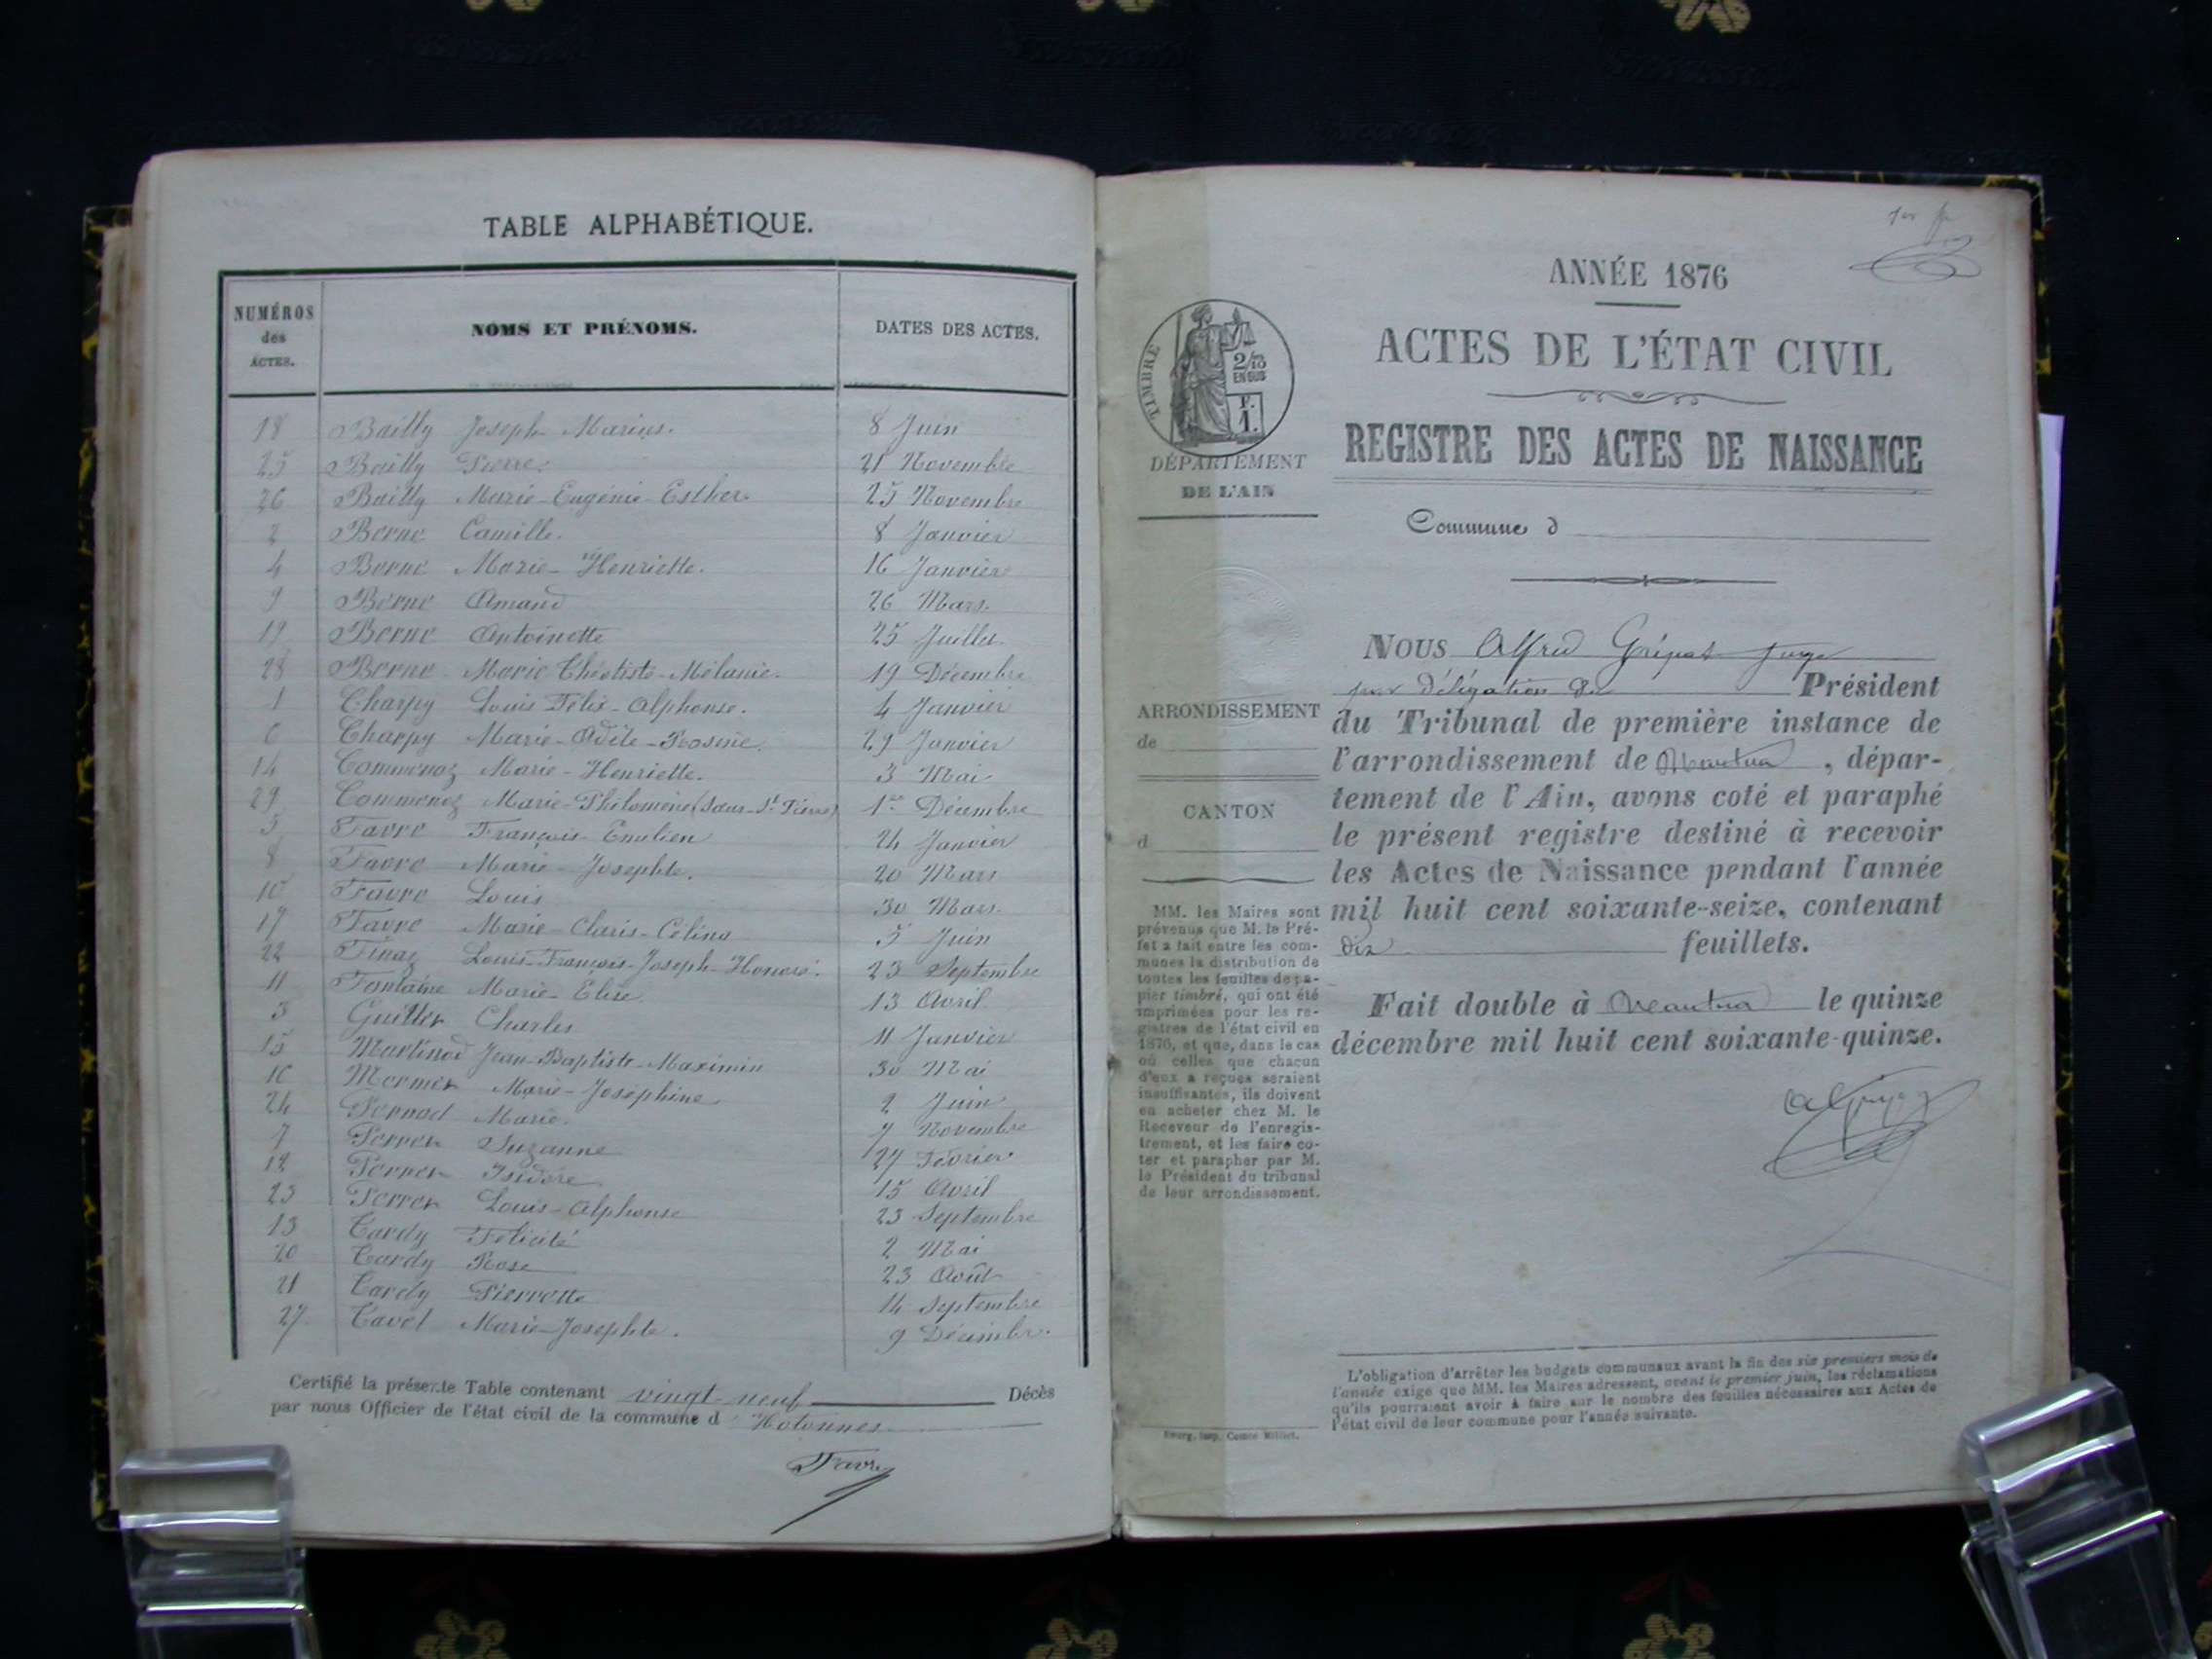 TABLE ALPHABÉTIQUE.
NUMÉROS des ACTES. NOMS ET PRÉNOMS. DATES DES ACTES.
18 Bailly Joseph-Marius. 8 Juin
25 Bailly Pierre. 21 Novembre
26 Bailly Marie-Eugénie-Esther. 25 Novembre
2 Borne Camille. 8 Janvier
4 Borne Marie-Henriette. 16 Janvier
9 Borne Amand 26 Mars.
19 Borne Antoinette 25 Juillet.
28 Borne Marie Théotiste-Mélanie. 19 Décembre
1 Charpy Louis Félix-Alphonse. 4 Janvier
6 Charpy Marie-Adèle-Rosine. 29 Janvier
14 Commenoz Marie-Henriette. 3 Mai
29 Commenoz Marie-Philomène (Sœur St Pierre) 1er Décembre
5 Favre François-Emilien 24 Janvier
8 Favre Marie-Josephte. 20 Mars
10 Favre Louis 30 Mars.
17 Favre Marie-Claris-Célina 5 Juin
22 Finaz Louis-François-Joseph-Honoré. 23 Septembre
11 Fontaine Marie-Elise 13 Avril
3 Guillet Charles 11 Janvier
15 Martinod Jean-Baptiste-Maximin 30 Mai
16 Mermet Marie-Joséphine 2 Juin
24 Pernod Marie. 7 Novembre
7 Perret Suzanne 27 Février
12 Perret Isidore 15 Avril
23 Perret Louis-Alphonse 23 Septembre
13 Tardy Félicité 2 Mai
20 Tardy Rose 23 Août
21 Tardy Pierrette 14 Septembre
27. Tavel Marie-Josephte. 9 Décembre.
Certifié la présente Table contenant vingt-neuf Décès
par nous Officier de l'état civil de la commune d Hotonnes
Favre
1er
ANNÉE 1876
ACTES DE L'ÉTAT CIVIL
REGISTRE DES ACTES DE NAISSANCE
Commune d
TIMBRE
2/10
EN SUS
F.
1.
DÉPARTEMENT
DE L'AIN
ARRONDISSEMENT
de
CANTON
d
MM. les Maires sont
prévenus que M. le Pré-
fet a fait entre les com-
munes la distribution de
toutes les feuilles de pa-
pier timbré, qui ont été
imprimées pour les re-
gistres de l'état civil en
1876, et que, dans le cas
où celles que chacun
d'eux a reçues seraient
insuffisantes, ils doivent
en acheter chez M. le
Receveur de l'enregis-
trement, et les faire co-
ter et parapher par M.
le Président du tribunal
de leur arrondissement.
NOUS Alfred Grépat Juge
par délégation du Président
du Tribunal de première instance de
l'arrondissement de Nantua, dépar-
tement de l'Ain, avons coté et paraphé
le présent registre destiné à recevoir
les Actes de Naissance pendant l'année
mil huit cent soixante-seize, contenant
dix feuillets.
Fait double à Nantua le quinze
décembre mil huit cent soixante-quinze.
L'obligation d'arrêter les budgets communaux avant la fin des six premiers mois de
l'année exige que MM. les Maires adressent, avant le premier juin, les réclamations
qu'ils pourraient avoir à faire sur le nombre des feuilles nécessaires aux Actes de
l'état civil de leur commune pour l'année suivante.
Bourg, imp. Comte Milliet.